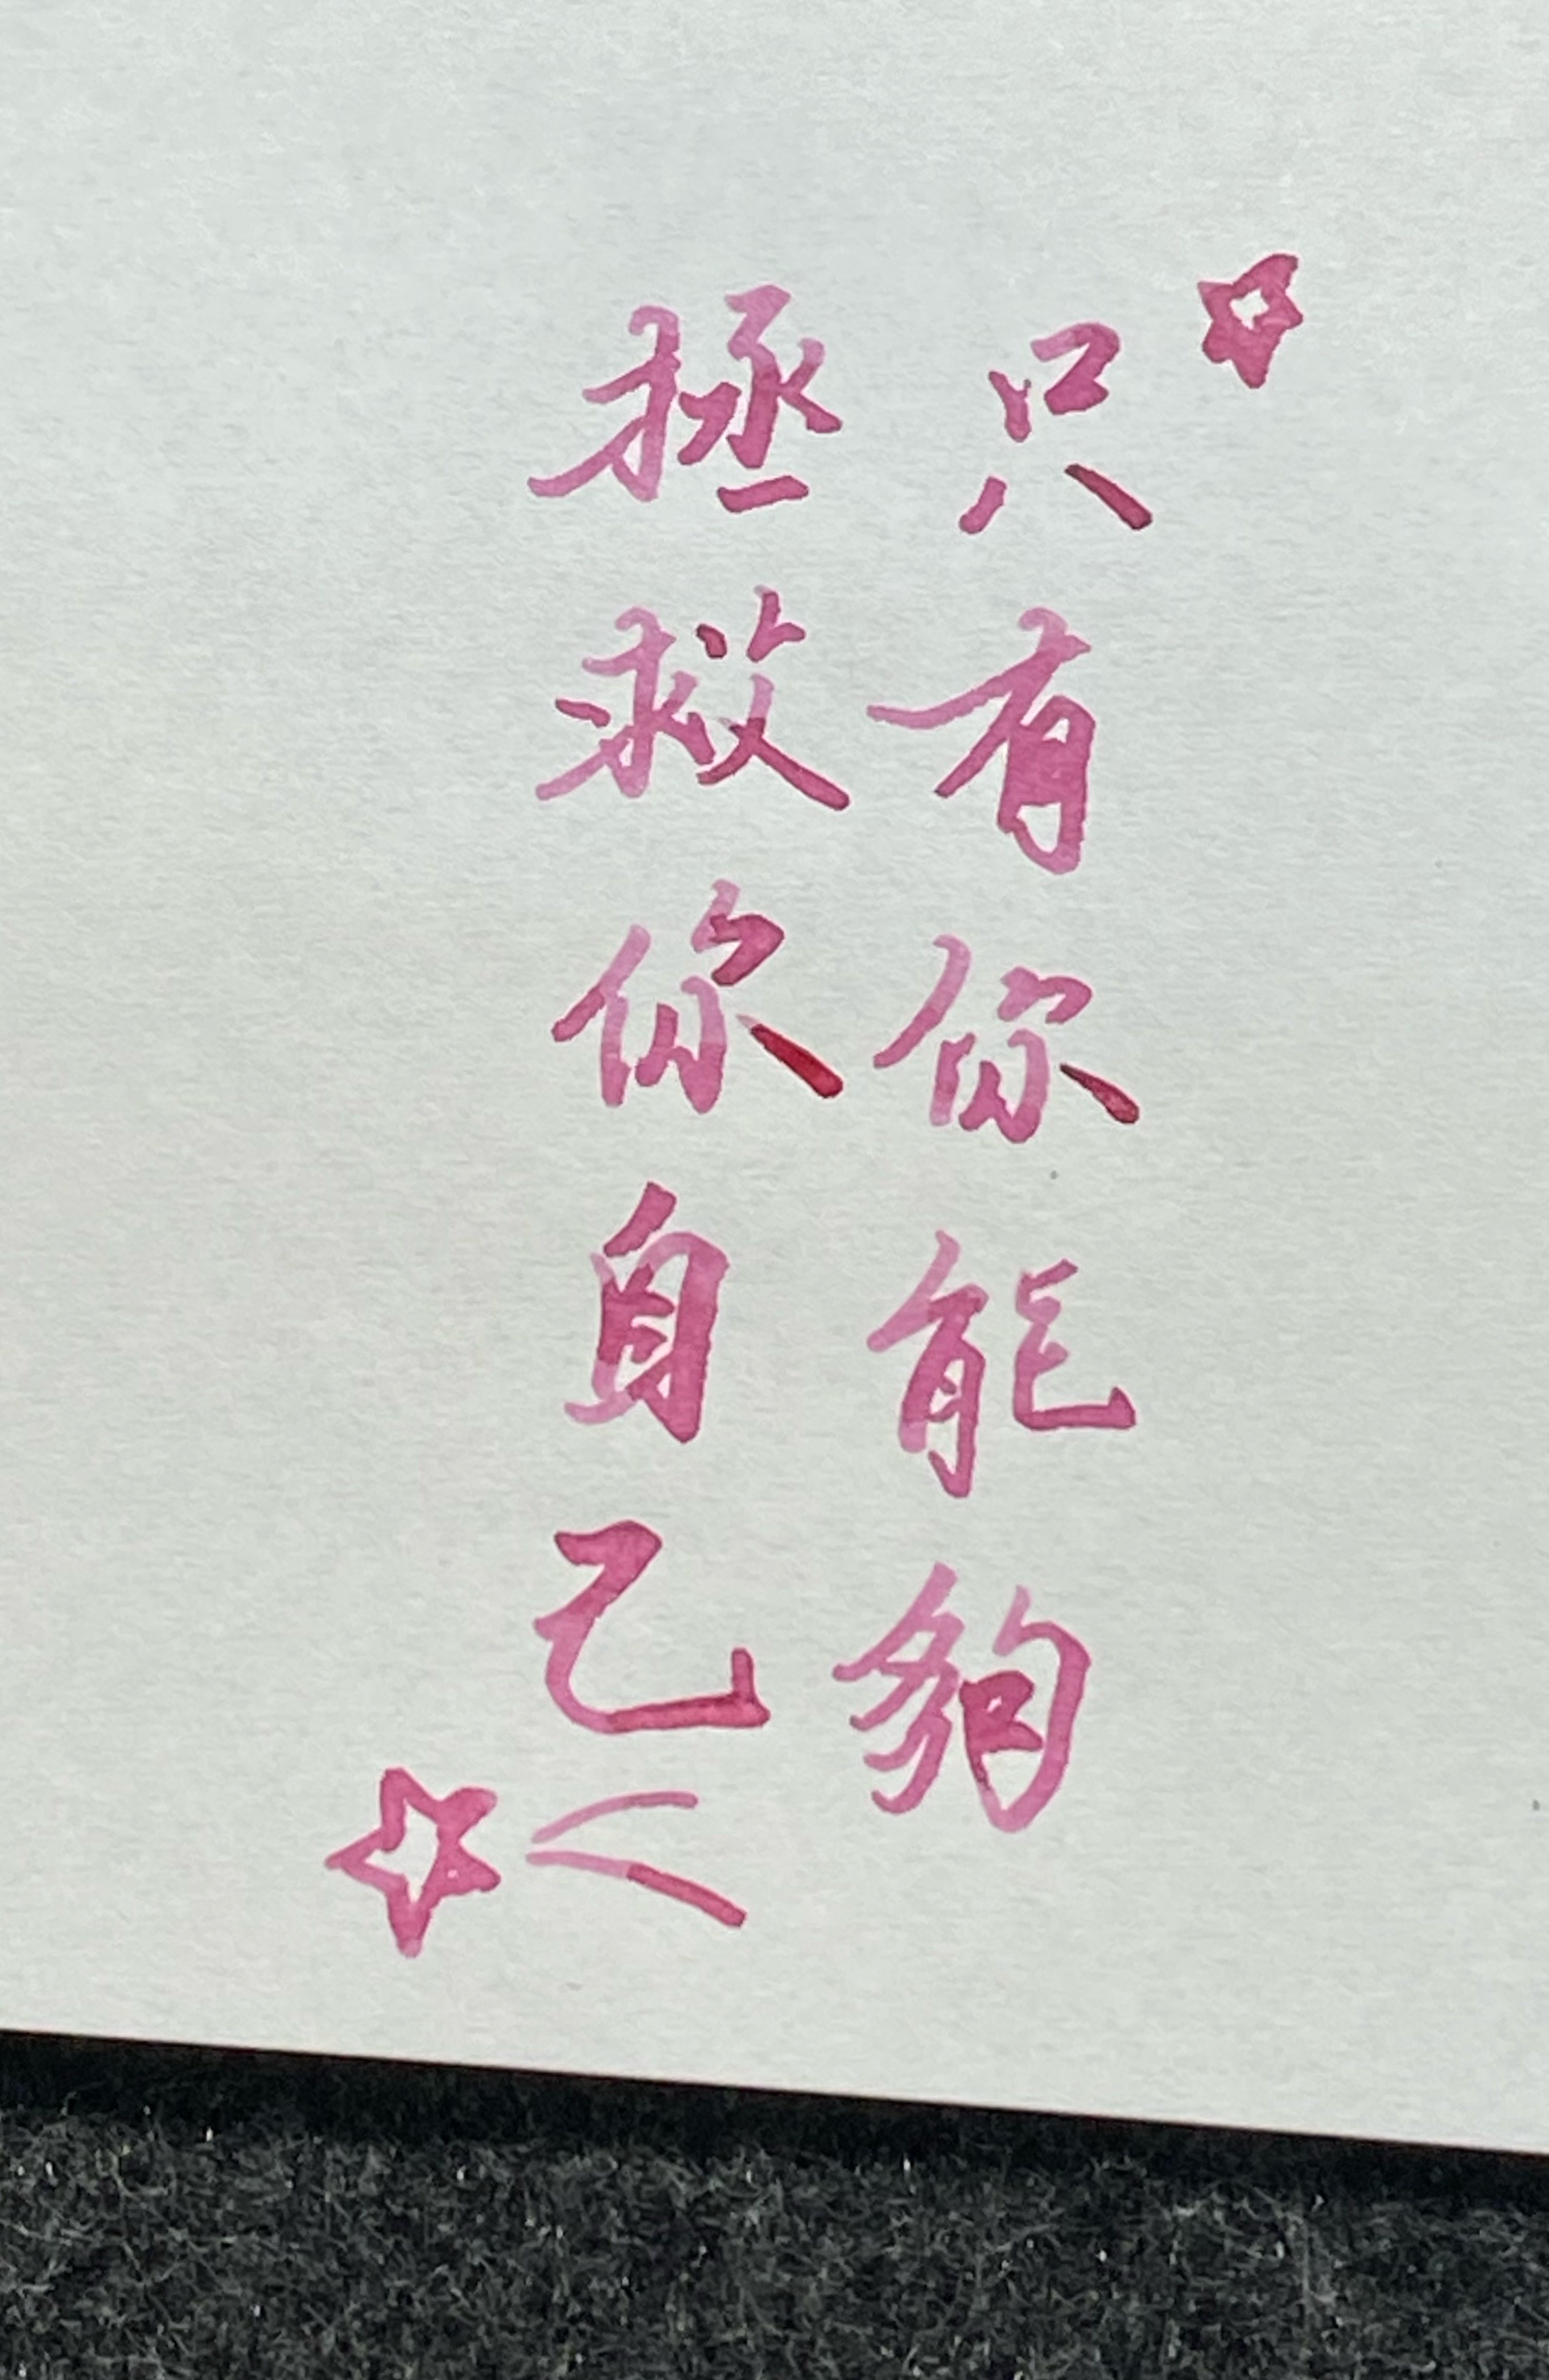 只有你能夠
拯救你自己